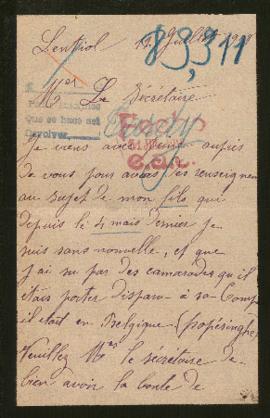 Lentiol 15 Juillet 1918
83,311
Mer Le Secrétaire
que se hace así
Je viens avec auprès
de vous pour avoir des renseignem
au sujet de mon fils qui
depuis le 4 mai dernier je
suis sans nouvelle, et que
j'ai su par des camarades qu'il
étais porter disparu à sa Comp
il était en Belgique
Veuillez Mer le secrétaire de
bien avoir la bonté de